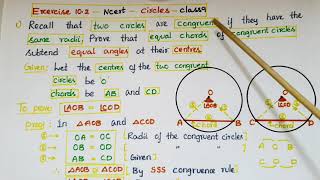 Exercise 10.2 - Ncert - Circles - class9
1) Recall that two circles are congruent if they have the
same radii. Prove that equal chords of congruent circles
subtend equal angles at their centres.
Given: let the centres of the two congruent
circles be 'O'
chords: be AB and CD
To prove: ∠AOB = ∠COD
Proof: In △AOB and △COD
OA = OC (Radii of the congruent circles)
OB = OD ( " " " )
AB = CD (Given)
△AOB ≅ △COD (By SSS congruence rule)
O
∠AOB
A chord B
O
∠COD
C chord D
A O B
C O D